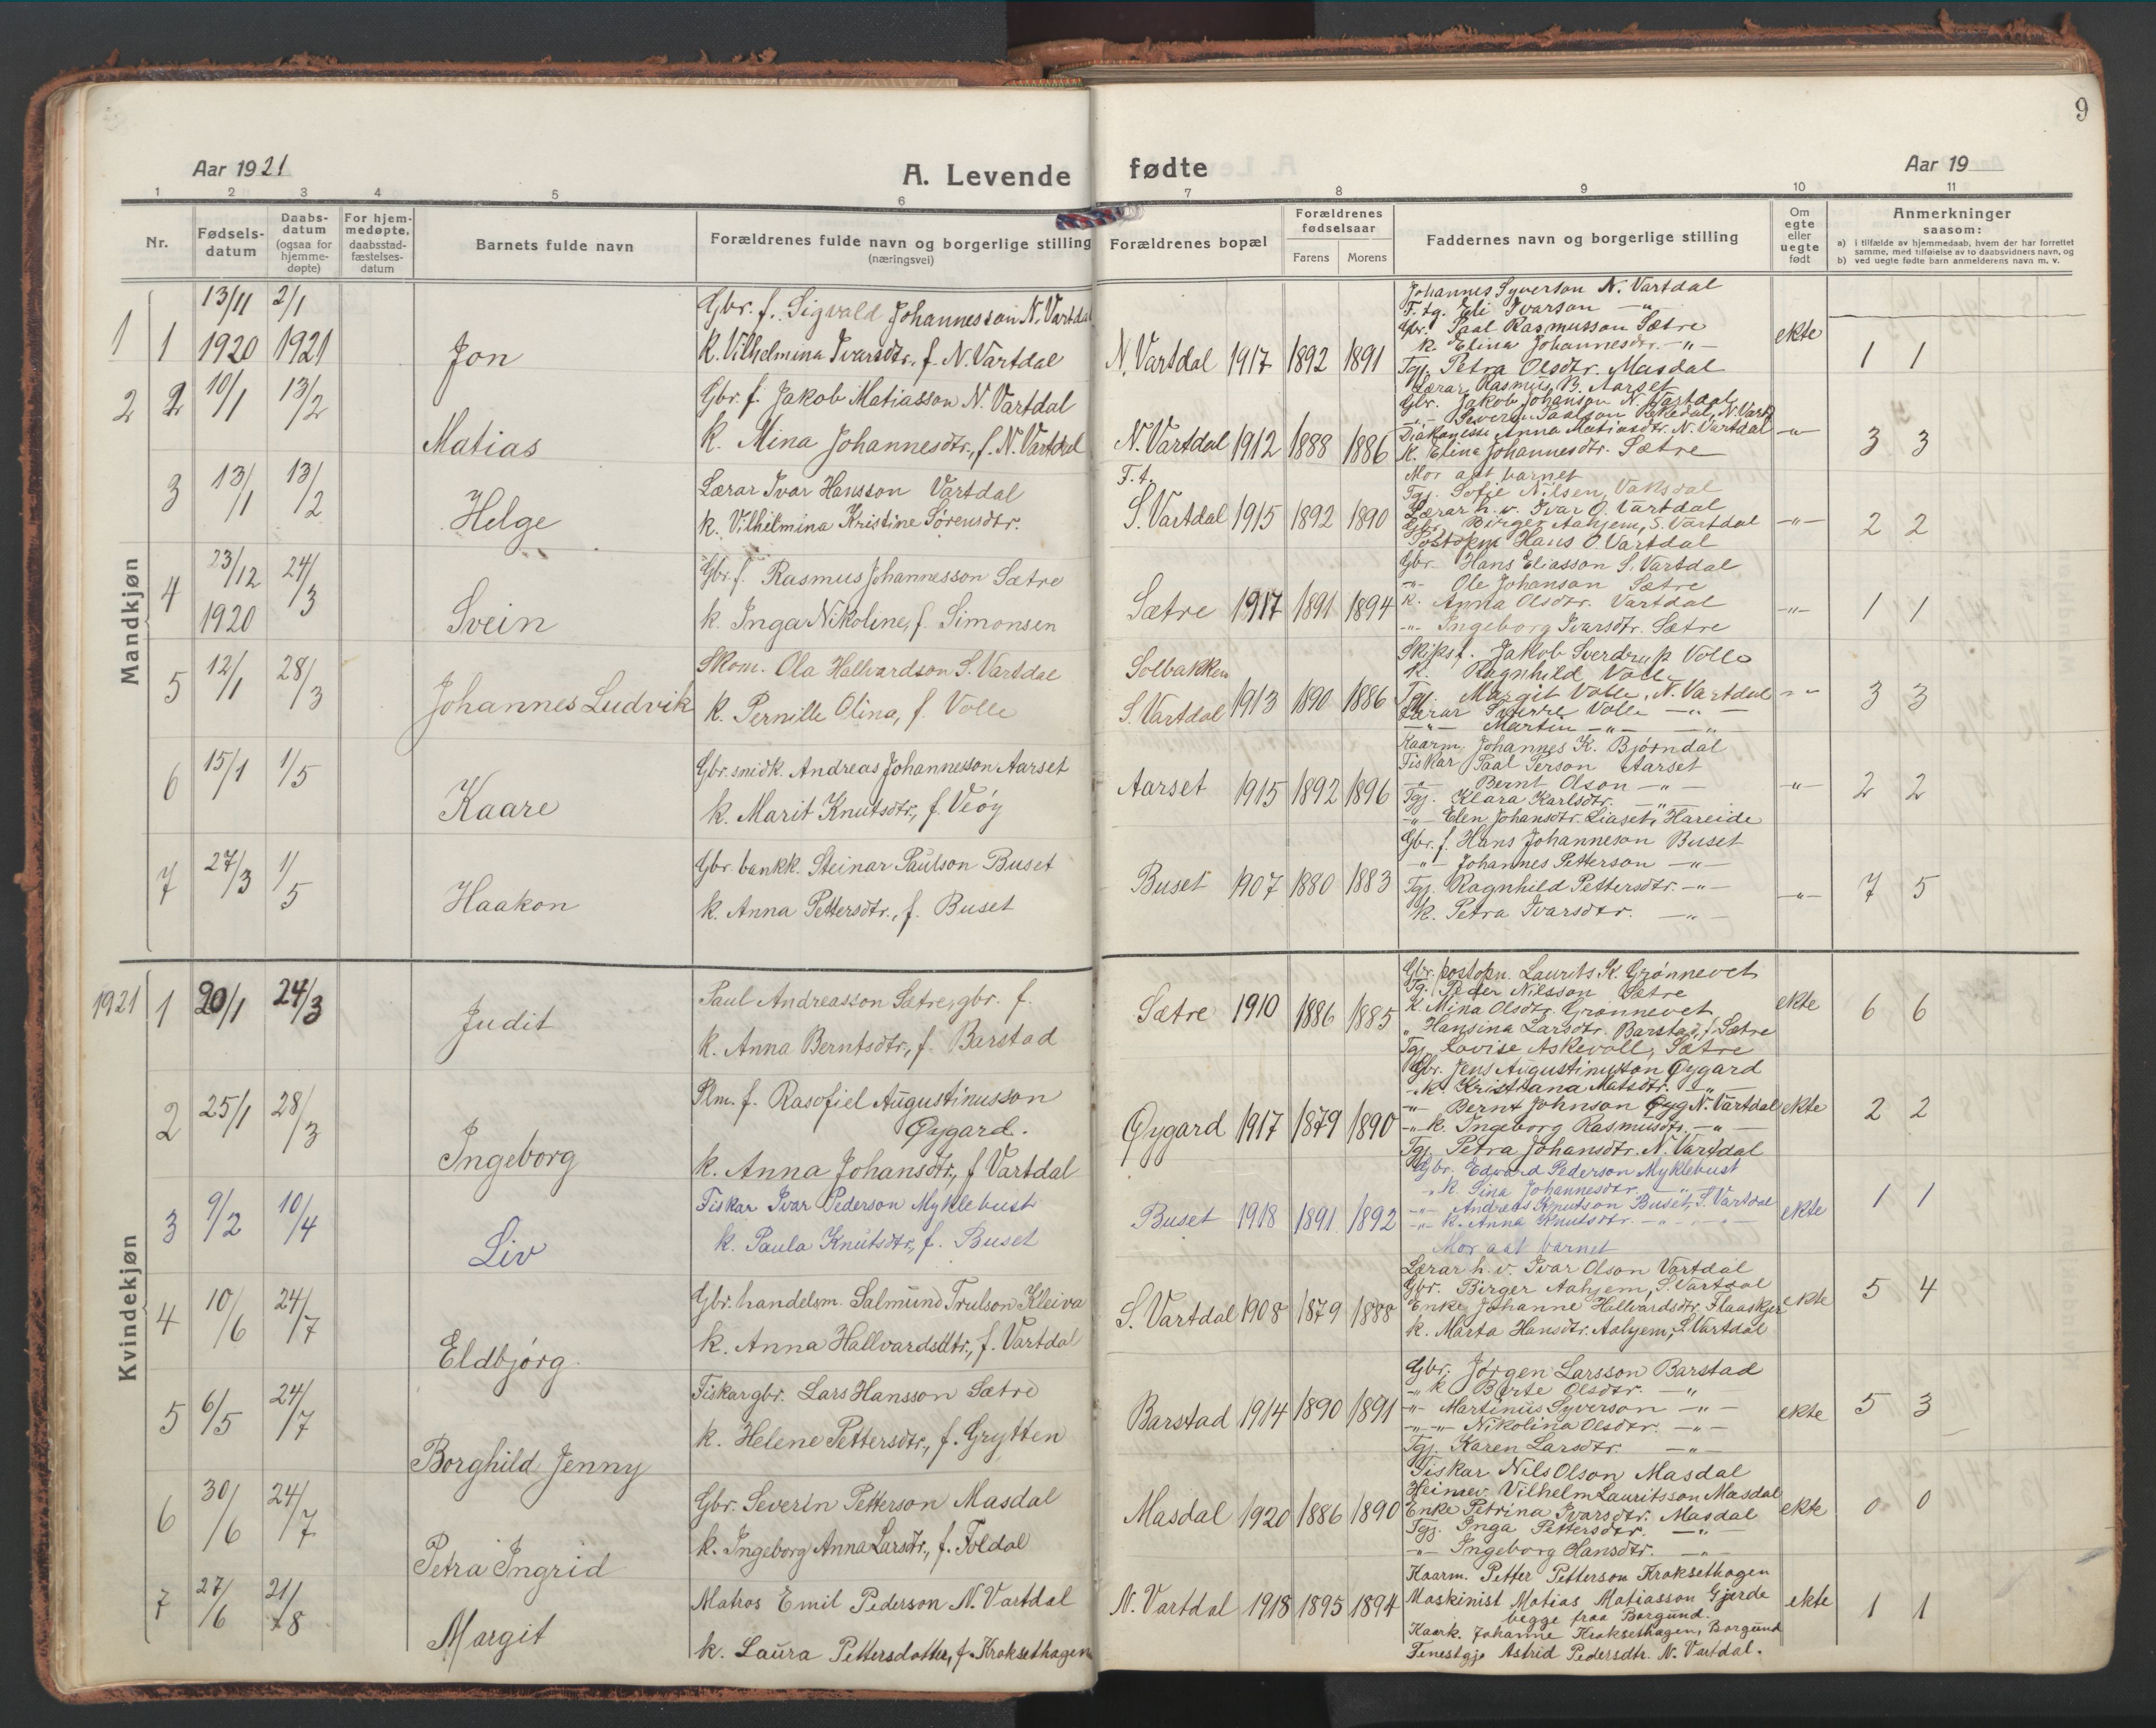 9
Aar 1921
A. Levende fødte
Aar 19
1 2 3 4 5 6 7 8 9 10 11
Nr.
Fødsels-
datum
Daabs-
datum
(ogsaa for
hjemme-
døpte)
For hjem-
medøpte,
daabsstad-
fæstelses-
datum
Barnets fulde navn
Forældrenes fulde navn og borgerlige stilling
(næringsvei)
Forældrenes bopæl
Forældrenes
fødselsaar
Farens Morens
Faddernes navn og borgerlige stilling
Om
egte
eller
uegte
født
Anmerkninger
saasom:
a) i tilfælde av hjemmedaab, hvem der har forrettet
samme, med tilføielse av to daabsvidners navn, og
b) ved uegte fødte barn anmelderens navn m. v.
Mandkjøn
1 1 13/11 1920 2/1 1921
Jon
Gbr. f. Sigvald Johannesson N. Vartdal
k. Vilhelmina Ivarsdtr., f. N. Vartdal
N. Vartdal 1917 1892 1891
Johannes Syverson N. Vartdal
F. tg. Eli Ivarson -"-
Gbr. Paal Rasmusson Sætre
k. Elina Johannesdtr. -"-
Tgj. Petra Olsdtr. Masdal
ekte 1 1
2 2 10/1 13/2
Matias
Gbr. f. Jakob Matiasson N. Vartdal
k. Mina Johannesdtr., f. N. Vartdal
N. Vartdal 1912 1888 1886
Lærar Rasmus B. Aarset
Gbr. Jakob Johanson N. Vartdal
Paalson N. Vartd.
Diakonisse Anna Matiasdtr. N. Vartdal
k. Elina Johannesdtr. Sætre
-"- 3 3
3 13/1 13/2
Helge
Lærar Ivar Hansson Vartdal
k. Vilhelmina Kristine Sørensdtr.
F. t.
S. Vartdal 1915 1892 1890
Mor aat barnet
Tgj. Sofie Nilsen, Vaksdal
Lærar h. v. Ivar O. Vartdal
Gbr. Birger Aahjem, S. Vartdal
Postopn. Hans O. Vartdal
-"- 2 2
4 23/12 1920 24/3
Svein
Gbr. f. Rasmus Johannesson Sætre
k. Inga Nikoline, f. Simonsen
Sætre 1917 1891 1894
Gbr. Hans Eliasson S. Vartdal
-"- Ole Johanson Sætre
k. Anna Olsdtr. Vartdal
-"- Ingeborg Ivarsdtr. Sætre
-"- 1 1
5 12/1 28/3
Johannes Ludvik
Skom. Ola Hallvardson S. Vartdal
k. Pernille Olina, f. Volle
Solbakken
S. Vartdal 1913 1890 1886
Skipsf. Jakob Sverdrup Volle
k. Ragnhild Volle
Tgj. Margit Volle, N. Vartdal
Lærar Sverre Volle -"-
-"- Martin -"- -"-
-"- 3 3
6 15/1 1/5
Kaare
Gbr. snidk. Andreas Johannesson Aarset
k. Marit Knutsdtr., f. Veøy
Aarset 1915 1892 1896
Kaarm. Johannes K. Bjørndal
Fiskar Paal Person Aarset
-"- Bernt Olson -"-
Tgj. Klara Karlsdtr. -"-
-"- Elen Johansdtr. Liaset, Hareide
-"- 2 2
7 27/3 1/5
Haakon
Gbr. bankk. Steinar Paulson Buset
k. Anna Pettersdtr., f. Buset
Buset 1907 1880 1883
Gbr. f. Hans Johanneson Buset
-"- Johannes Petterson -"-
Tgj. Ragnhild Pettersdtr. -"-
k. Petra Ivarsdtr. -"-
-"- 7 5
Kvindekjøn
1921 1 20/1 24/3
Judit
Paul Andreasson Sætre, gbr. f.
k. Anna Berntsdtr., f. Barstad
Sætre 1910 1886 1885
Gbr. postopn. Laurits K. Grønnevet
Tg. Peder Nilsson Sætre
k. Mina Olsdtr. Grønnevet
" Hansina Larsdtr. Barstad, f. Sætre
Tgj. Lovise Askevoll, Sætre
ekte 6 6
2 25/1 28/3
Ingeborg
Plm. f. Rasofiel Augustinusson
Øygard.
k. Anna Johansdtr., f Vartdal
Øygard 1917 1879 1890
Gbr. Jens Augustinusson Øygard
-"- k. Kristiana Matsdtr. -"-
-"- Bernt Johnson Øyg N. Vartdal
-"- k. Ingeborg Rasmusdtr. -"-
Tgj. Petra Johansdtr. N. Vartdal
ekte 2 2
3 9/2 10/4
Liv
Fiskar Ivar Pederson Myklebust
k. Paula Knutsdtr., f. Buset
Buset 1918 1891 1892
Gbr. Edvard Pederson Myklebust
-"- k. Sina Johannesdtr. -"-
-"- Andreas Knutson Buset, S. Vartdal
-"- k. Anna Knutsdtr. -"- -"-
Mor aat barnet
ekte 1 1
4 10/6 24/7
Eldbjørg
Gbr. handelsm. Salmund Trulson Kleiva
k. Anna Hallvardsdtr., f. Vartdal
S. Vartdal 1908 1879 1888
Lærar h. v. Ivar Olson Vartdal
Gbr. Birger Aahjem, S. Vartdal
Enke Johanne Hallvardsdtr. Flaaskjer
k. Marta Hansdtr. Aahjem, S. Vartdal
ekte 5 4
5 6/5 24/7
Borghild Jenny
Fiskar gbr. Lars Hansson Sætre
k. Helene Pettersdtr., f. Grytten
Barstad 1914 1890 1891
Gbr. Jørgen Larsson Barstad
-"- k Berte Olsdtr. -"-
-"- Martinus Syverson -"-
-"- -"- Nikolina Olsdtr. -"-
Tgj. Karen Larsdtr. -"-
ekte 5 3
6 30/6 24/7
Petra Ingrid
Gbr. Severin Petterson Masdal
k. Ingeborg Anna Larsdtr., f. Foldal
Masdal 1920 1886 1890
Fiskar Nils Olson Masdal
Heimev. Vilhelm Lauritsson Masdal
Enke Petrina Ivarsdtr. Masdal
Tgj. Inga Pettersdtr. -"-
-"- Ingeborg Hansdtr. -"-
ekte 0 0
7 27/6 21/8
Margit
Matros Emil Pederson N. Vartdal
k. Laura Pettersdotter, f. Kroksethagen
N. Vartdal 1918 1895 1894
Kaarm. Petter Petterson Kroksethagen
Maskinist Matias Matiasson Gjerde
begge fraa Borgund.
Kaark. Johanne Kroksethagen, Borgund
Tenestgj. Astrid Pedersdtr. N. Vartdal.
ekte 1 1